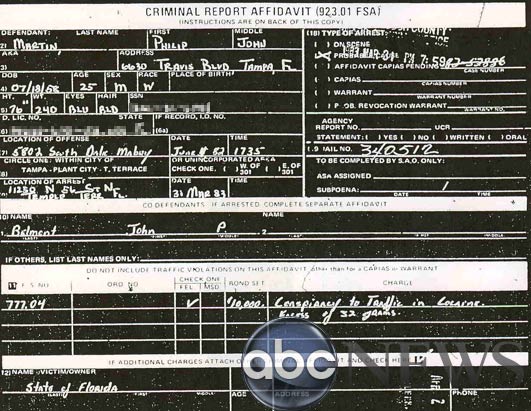 CRIMINAL REPORT AFFIDAVIT (923.01 FSA)
(INSTRUCTIONS ARE ON BACK OF THIS COPY)
DEFENDANT: LAST NAME FIRST MIDDLE
MARTIN PHILIP JOHN
AKA ADDRESS
6630 TRAVIS BLVD TAMPA, F
DOB AGE SEX RACE PLACE OF BIRTH
4) 07/18/58 25 M W
HT. WT. EYES HAIR SSN
76" 240 BLU BLD
D. LIC, NO. STATE IF RECORD, I.D. NO.
(6a)
LOCATION OF OFFENSE DATE TIME
5802 South Dale Mabry June 82 1735
CIRCLE ONE: WITHIN CITY OF OR UNINCORPORATED AREA CHECK ONE: W. OF E. OF
TAMPA - PLANT CITY - T. TERRACE 301 301
LOCATION OF ARREST DATE TIME
11250 N 56 ST
Temple Terr FL 31 MAR 83
(18) TYPE OF ARREST:
ON SCENE
PROBABLE CAUSE
AFFIDAVIT CAPIAS PENDING
CASE NUMBER
CAPIAS
CAPIAS NUMBER
WARRANT
WARRANT NUMBER
REVOCATION WARRANT
AGENCY
REPORT NO. UCR
STATEMENT: ( ) YES ( ) NO ( ) WRITTEN ( ) ORAL
JAIL NO. 340512
TO BE COMPLETED BY S.A.O. ONLY:
ASA ASSIGNED
SUBPOENA: /
CO DEFENDANTS: IF ARRESTED, COMPLETE SEPARATE AFFIDAVIT
10) NAME NAME
Belmont John P. 2
(LAST) (FIRST) (MIDDLE) (LAST) (FIRST) (MIDDLE)
IF OTHERS, LIST LAST NAMES ONLY:
DO NOT INCLUDE TRAFFIC VIOLATIONS ON THIS AFFIDAVIT other than for a CAPIAS or WARRANT
11 F.S. NO ORD NO CHECK ONE FEL MSD BOND SET CHARGE
777.04 ✓ $10,000. Conspiracy to Traffic in Cocaine.
Excess of 32 grams.
IF ADDITIONAL CHARGES ATTACH AND CHECK HERE
abc NEWS
12) NAME VICTIM/OWNER
State of Florida
(LAST) (FIRST) (MIDDLE) AGE ADDRESS PHONE